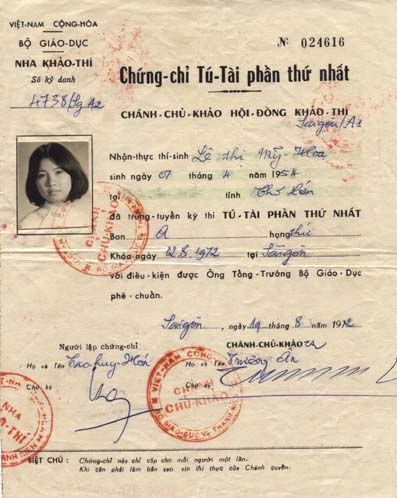 VIỆT-NAM CỘNG-HÒA
BỘ GIÁO-DỤC
NHA KHẢO-THÍ
Số ký danh
4738/Sg A2
№ 024616
Chứng-chỉ Tú-Tài phần thứ nhất
CHÁNH-CHỦ-KHẢO HỘI-ĐỒNG KHẢO-THÍ
Saigon/A1
Nhận-thực thí-sinh Lê thị Mỹ-Hoa
sinh ngày 07 tháng 4 năm 1954
tại tỉnh
đã trúng-tuyển kỳ thi TÚ-TÀI PHẦN THỨ NHẤT
Ban A hạng thứ
Khóa ngày 02.8.1972 tại Sàigòn
với điều-kiện được Ông Tổng-Trưởng Bộ Giáo-Dục
phê-chuẩn.
Saigon, ngày 19 tháng 8 năm 1972
Người lập chứng-chỉ
CHÁNH-CHỦ-KHẢO
Họ và Tên
Họ và Tên Trương Ân
Chữ ký
Chữ ký
CHÁNH
CHỦ-KHẢO
NHA
KHẢO-THÍ
CHÁNH
CHỦ-KHẢO
BIỆT CHÚ : Chứng-chỉ này chỉ cấp cho mỗi người một lần.
Khi cần phải làm bản sao, xin thị thực của Chánh quyền.